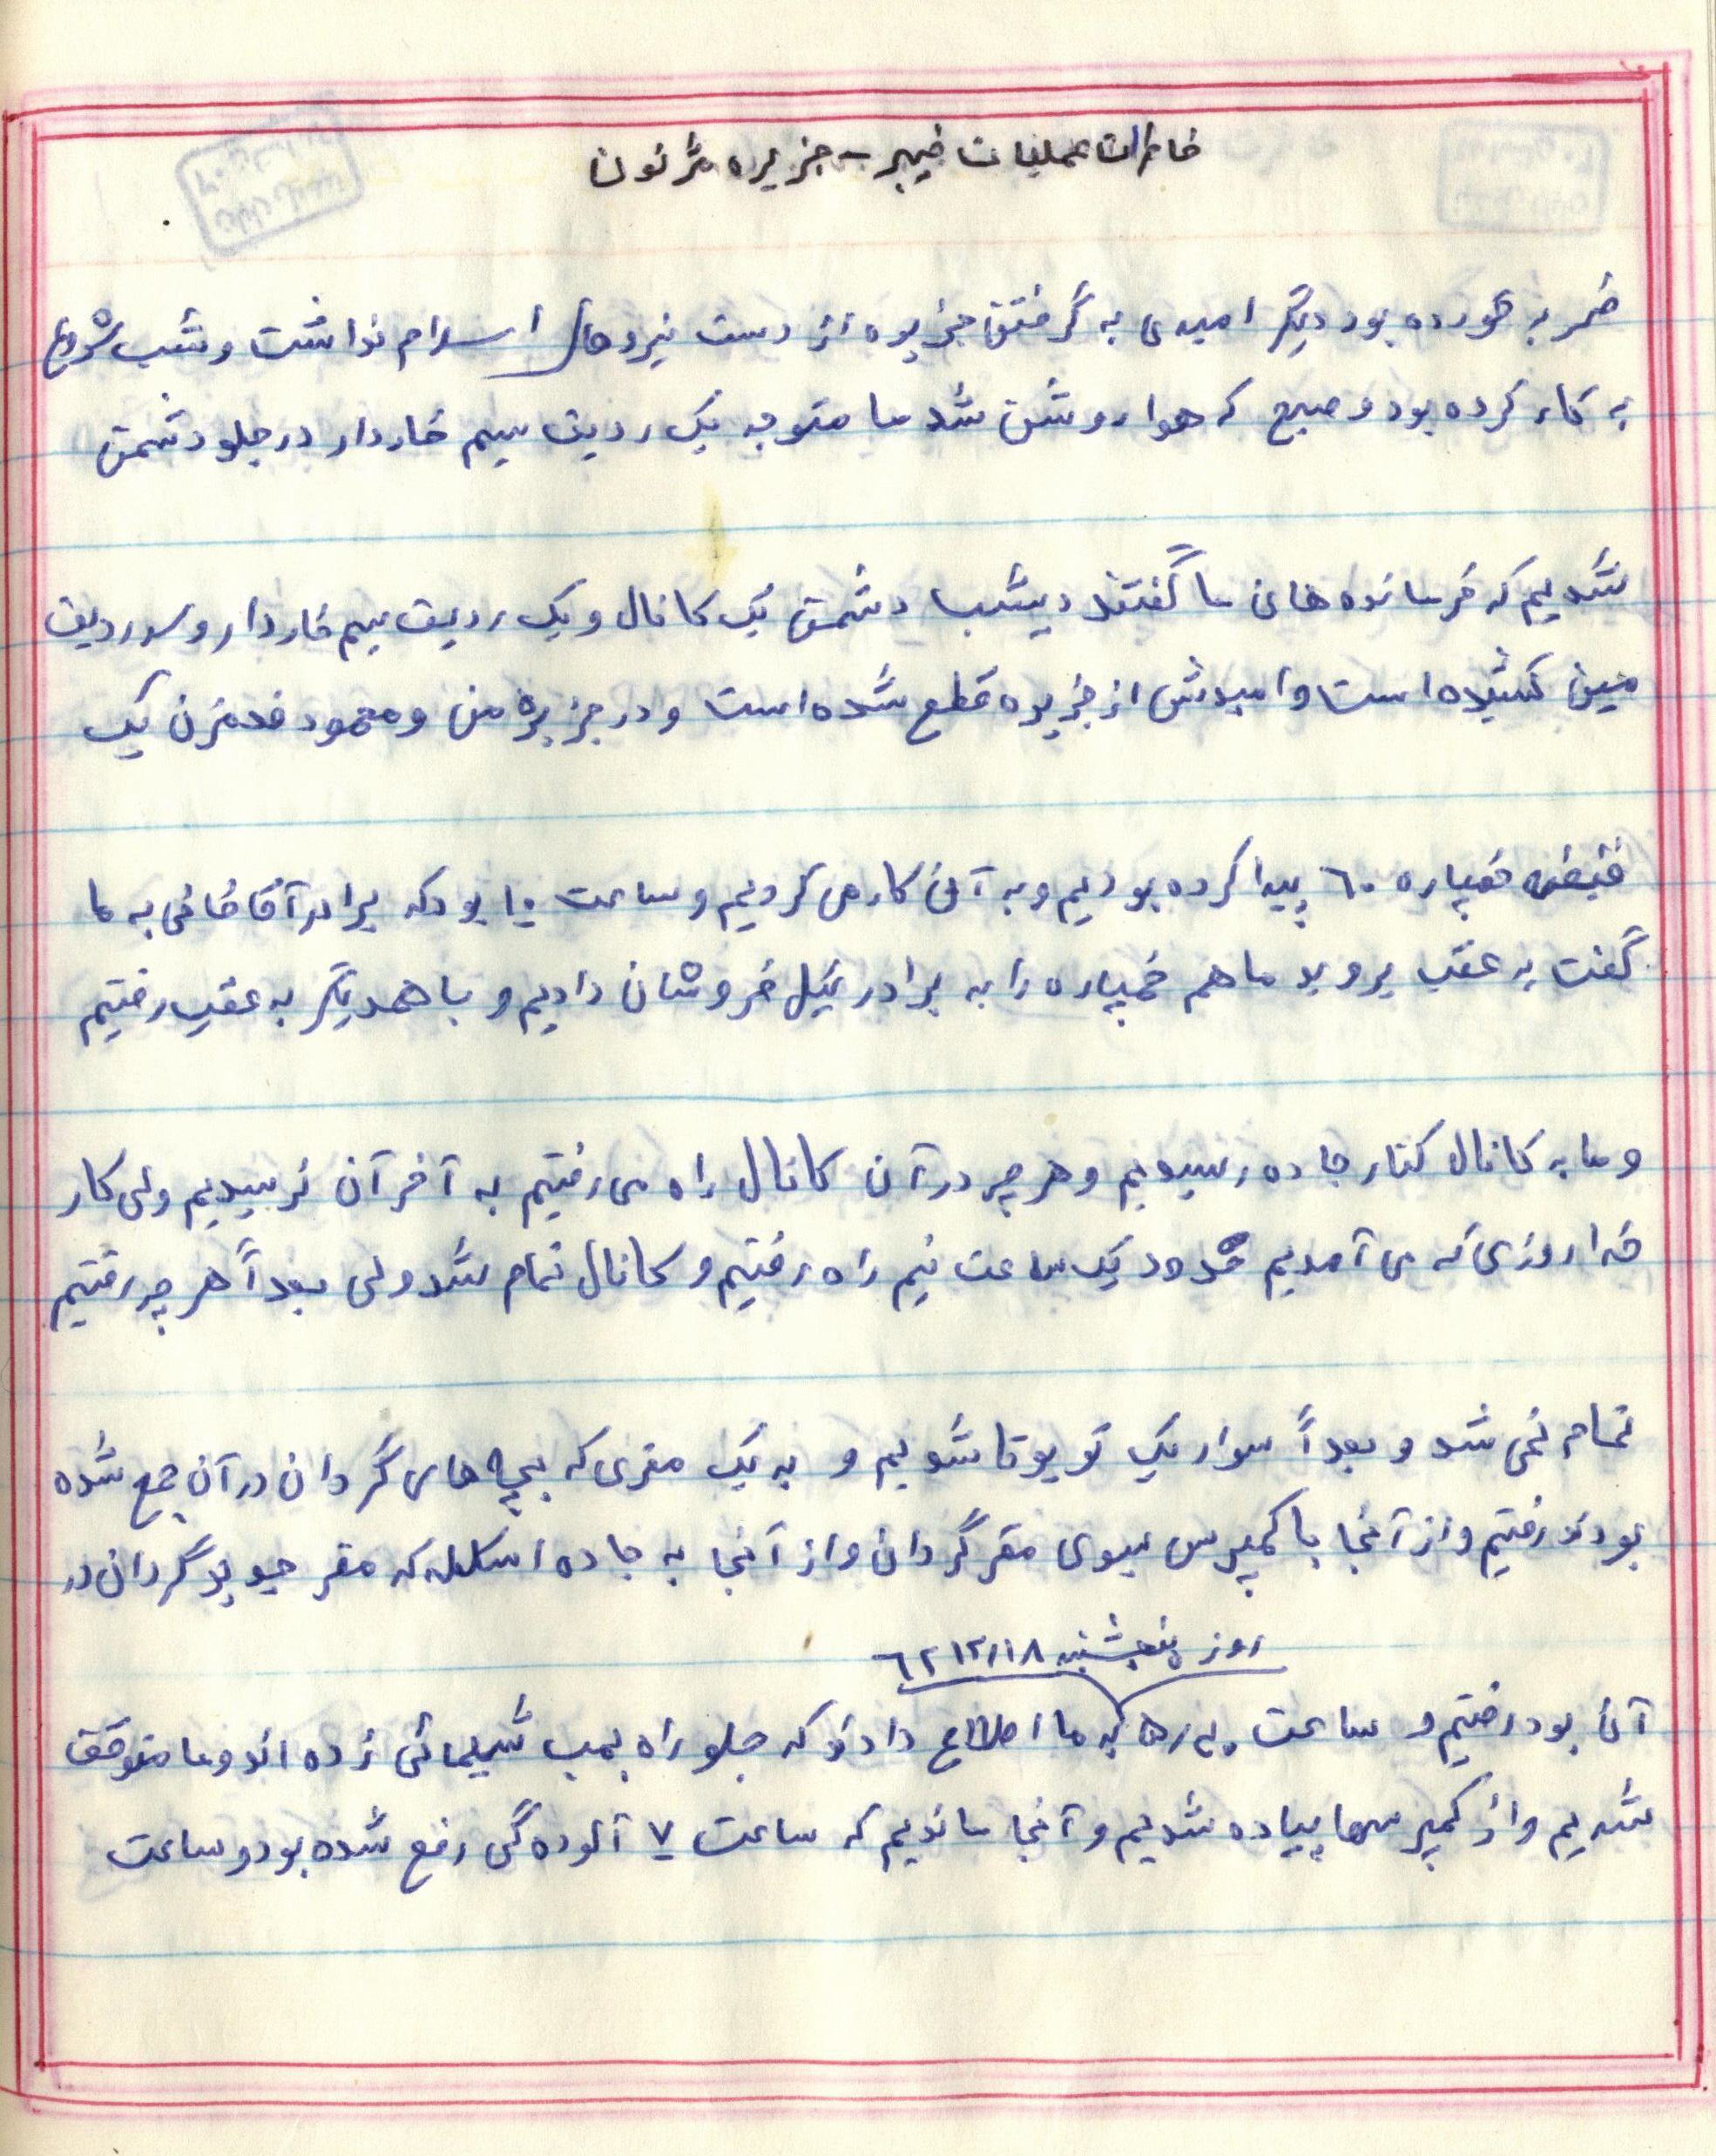 خاطرات عملیات خیبر - جزیره مجنون
ضربه خورده بود دیگر امیدی به گرفتن جزیره از دست نیروهای اسلام نداشت و شب شروع
به کار کرده بود و صبح که هوا روشن شد ما متوجه یک ردیف سیم خاردار در جلو دشمن
شدیم که فرمانده های ما گفتند دیشب دشمن یک کانال و یک ردیف سیم خاردار و سه ردیف
مین کشیده است و امیدش از جزیره قطع شده است و در جزیره من و محمود یک
قبضه خمپاره ٦۰ پیدا کرده بودیم و به آن کار می کردیم و ساعت ۱۰ بود که برادر آقاخانی به ما
گفت به عقب بروید ما هم خمپاره را به برادر نیل فروشان دادیم و با همدیگر به عقب رفتیم
و ما به کانال کنار جاده رسیدیم و هر چه در آن کانال راه می رفتیم به آخر آن نرسیدیم ولی کار
خدا روزی که می آمدیم حدود یک ساعت نیم راه رفتیم و کانال تمام شد ولی بعداً هر چه رفتیم
تمام نمی شد و بعداً سوار یک تویوتا شدیم و به یک مقری که بچه های گردان در آن جمع شده
بودند رفتیم و از آنجا با کمپرس سوی مقر گردان و از آنجا به جاده اسکله که مقر جدید گردان در
روز پنجشنبه ٦۲/۱۲/۱۸
آن بود رفتیم و ساعت به ما اطلاع دادند که جلو راه بمب شیمیائی زده اند و ما متوقف
شدیم و از کمپرسها پیاده شدیم و آنجا ماندیم که ساعت ۷ آلوده گی رفع شده بود و ساعت